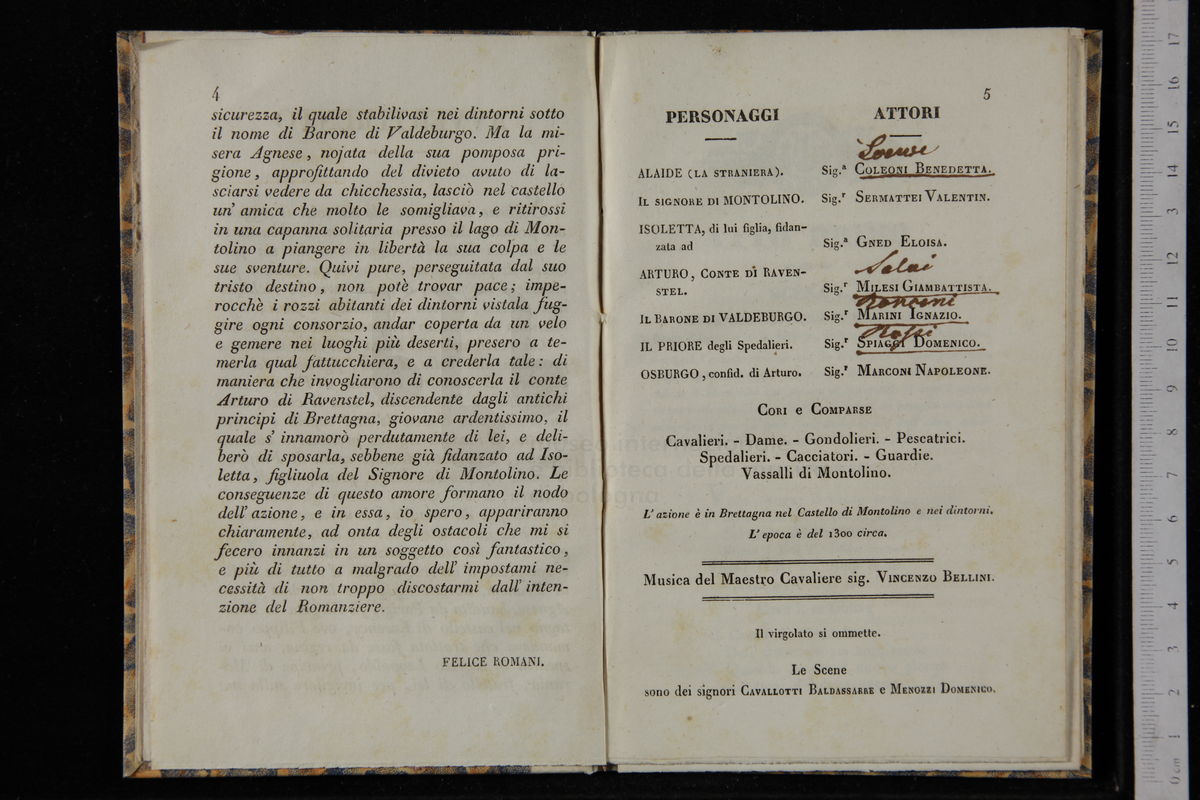 4
sicurezza, il quale stabilivasi nei dintorni sotto
il nome di Barone di Valdeburgo. Ma la mi-
sera Agnese, nojata della sua pomposa pri-
gione, approfittando del divieto avuto di la-
sciarsi vedere da chicchessia, lasciò nel castello
un' amica che molto le somigliava, e ritirossi
in una capanna solitaria presso il lago di Mon-
tolino a piangere in libertà la sua colpa e le
sue sventure. Quivi pure, perseguitata dal suo
tristo destino, non potè trovar pace; impe-
rocchè i rozzi abitanti dei dintorni vistala fug-
gire ogni consorzio, andar coperta da un velo
e gemere nei luoghi più deserti, presero a te-
merla qual fattucchiera, e a crederla tale: di
maniera che invogliarono di conoscerla il conte
Arturo di Ravenstel, discendente dagli antichi
principi di Brettagna, giovane ardentissimo, il
quale s' innamorò perdutamente di lei, e deli-
berò di sposarla, sebbene già fidanzato ad Iso-
letta, figliuola del Signore di Montolino. Le
conseguenze di questo amore formano il nodo
dell' azione, e in essa, io spero, appariranno
chiaramente, ad onta degli ostacoli che mi si
fecero innanzi in un soggetto così fantastico,
e più di tutto a malgrado dell' impostami ne-
cessità di non troppo discostarmi dall' inten-
zione del Romanziere.
FELICE ROMANI.
5
PERSONAGGI ATTORI
ALAIDE (LA STRANIERA). Sig.a COLEONI BENEDETTA.
IL SIGNORE DI MONTOLINO. Sig.r SERMATTEI VALENTIN.
ISOLETTA, di lui figlia, fidan-
zata ad Sig.a GNED ELOISA.
Salvi
ARTURO, CONTE DI RAVEN-
STEL. Sig.r MILESI GIAMBATTISTA.
Ronconi
IL BARONE DI VALDEBURGO. Sig.r MARINI IGNAZIO.
Rossi
IL PRIORE degli Spedalieri. Sig.r SPIAGGI DOMENICO.
OSBURGO, confid. di Arturo. Sig.r MARCONI NAPOLEONE.
CORI e COMPARSE
Cavalieri. - Dame. - Gondolieri. - Pescatrici.
Spedalieri. - Cacciatori. - Guardie.
Vassalli di Montolino.
L' azione è in Brettagna nel Castello di Montolino e nei dintorni.
L' epoca è del 1300 circa.
Musica del Maestro Cavaliere sig. VINCENZO BELLINI.
Il virgolato si ommette.
Le Scene
sono dei signori CAVALLOTTI BALDASSARRE e MENOZZI DOMENICO.